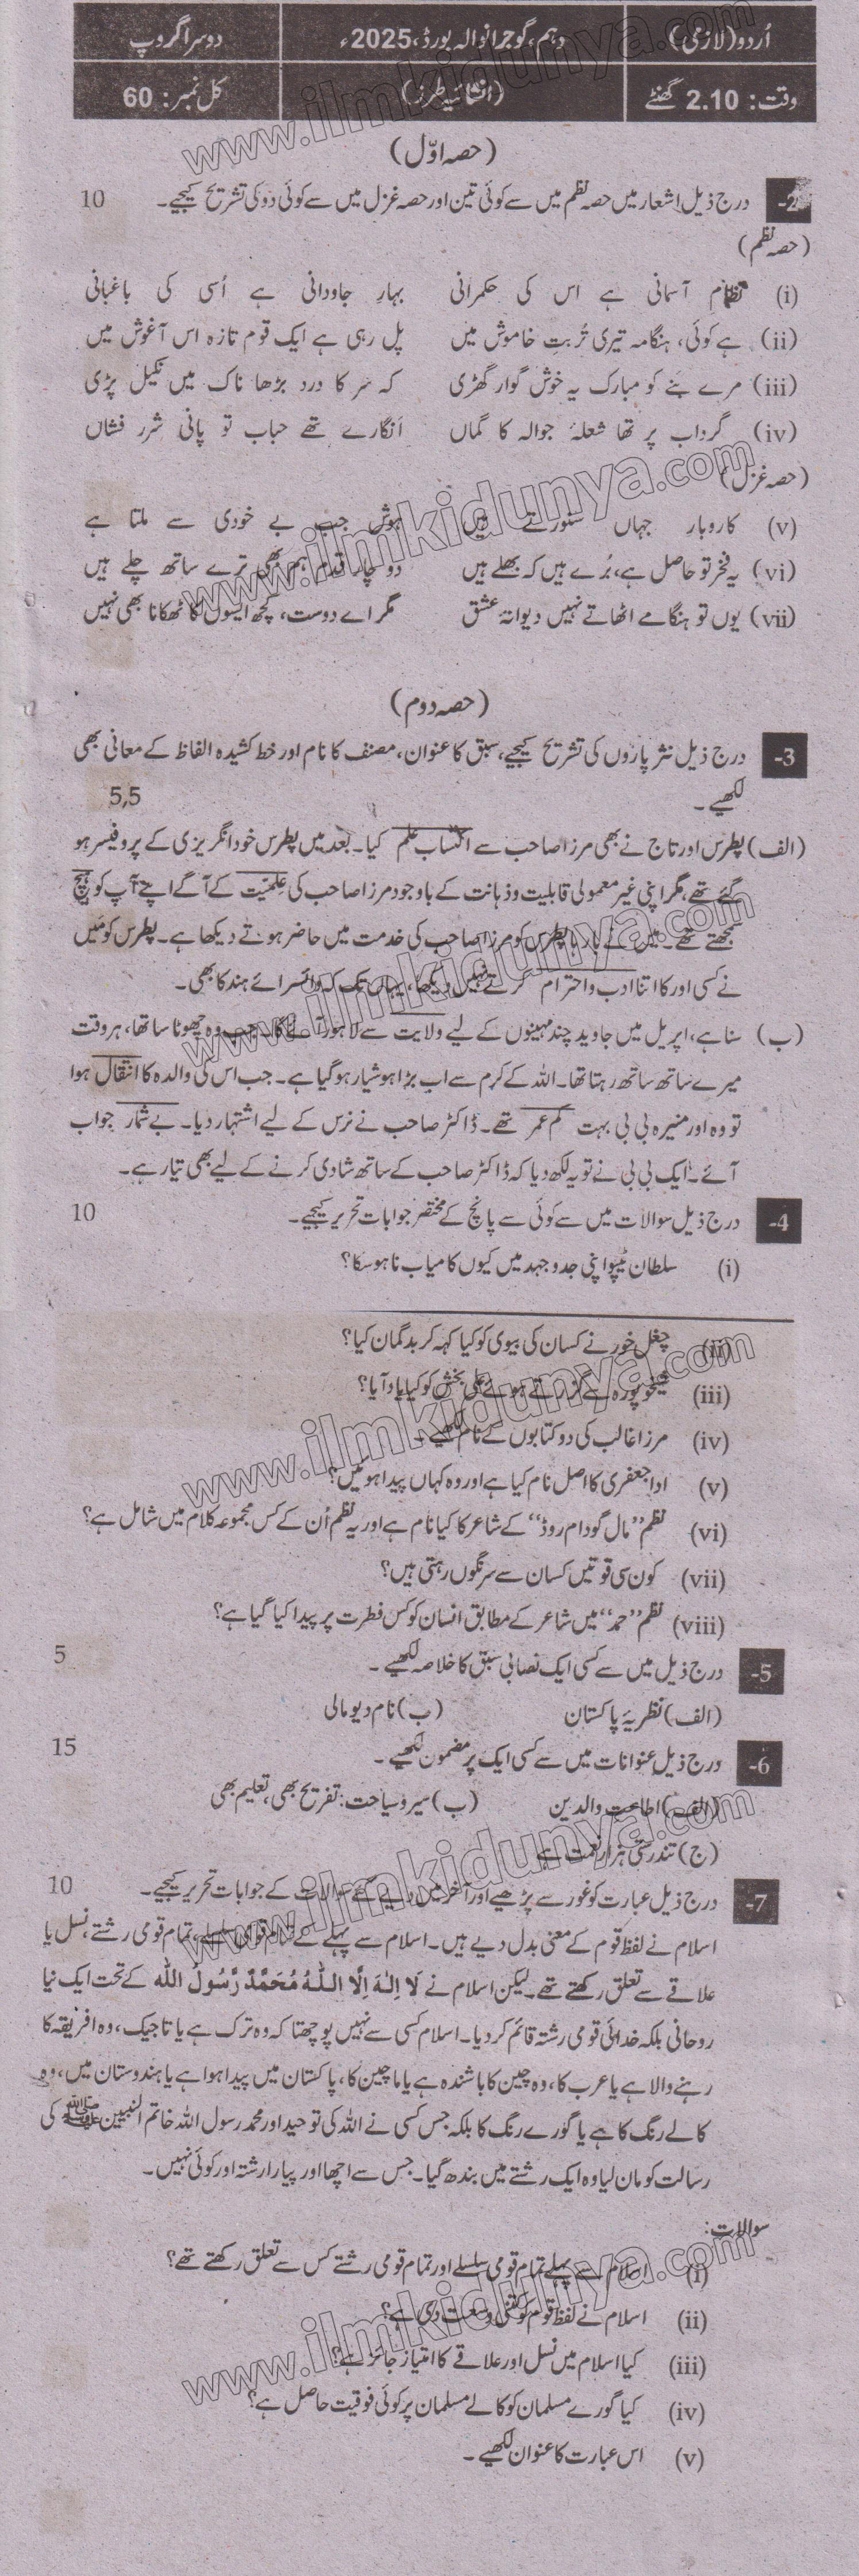 اُردو (لازمی) دہم، گوجرانوالہ بورڈ، 2025ء دوسرا گروپ
وقت: 2.10 گھنٹے (انشائیہ طرز) کل نمبر: 60
(حصہ اوّل)
2- درج ذیل اشعار میں حصہ نظم میں سے کوئی تین اور حصہ غزل میں سے کوئی دو کی تشریح کیجیے۔ 10
(حصہ نظم)
(i) نظامِ آسمانی ہے اس کی حکمرانی بہارِ جاودانی ہے اُسی کی باغبانی
(ii) ہے کوئی، ہنگامہ تیری تُربتِ خاموش میں پل رہی ہے ایک قوم تازہ اس آغوش میں
(iii) مرے بنے کو مبارک یہ خوش گوار گھڑی کہ سر کا درد بڑھا ناک میں نکیل پڑی
(iv) گرداب پر تھا شعلۂ جوالہ کا گماں اَنگارے تھے حباب تو پانی شرر فشاں
(حصہ غزل)
(v) کاروبارِ جہاں سنورتے ہیں ہوش جب بے خودی سے ملتا ہے
(vi) یہ فخر تو حاصل ہے، بُرے ہیں کہ بھلے ہیں دو چار قدم ہم بھی ترے ساتھ چلے ہیں
(vii) یوں تو ہنگامے اٹھاتے نہیں دیوانۂ عشق مگر اے دوست، کچھ ایسوں کا ٹھکانا بھی نہیں
(حصہ دوم)
3- درج ذیل نثر پاروں کی تشریح کیجیے، سبق کا عنوان، مصنف کا نام اور خط کشیدہ الفاظ کے معانی بھی
لکھیے۔ 5,5
(الف) پطرس اور تاج نے بھی مرزا صاحب سے اکتسابِ علم کیا۔ بعد میں پطرس خود انگریزی کے پروفیسر ہو
گئے تھے، مگر اپنی غیر معمولی قابلیت و ذہانت کے باوجود مرزا صاحب کی عِلمیّت کے آگے اپنے آپ کو ہیچ
سمجھتے تھے۔ میں نے بارہا پطرس کو مرزا صاحب کی خدمت میں حاضر ہوتے دیکھا ہے۔ پطرس کو مَیں
نے کسی اور کا اتنا ادب و احترام کرتے نہیں دیکھا، یہاں تک کہ وائسرائے ہند کا بھی۔
(ب) سنا ہے، اپریل میں جاوید چند مہینوں کے لیے ولایت سے لاہور آئے گا۔ جب وہ چھوٹا سا تھا، ہر وقت
میرے ساتھ ساتھ رہتا تھا۔ اللہ کے کرم سے اب بڑا ہوشیار ہو گیا ہے۔ جب اس کی والدہ کا انتقال ہوا
تو وہ اور منیرہ بی بی بہت کم عمر تھے۔ ڈاکٹر صاحب نے نرس کے لیے اشتہار دیا۔ بے شمار جواب
آئے۔ ایک بی بی نے تو یہ لکھ دیا کہ ڈاکٹر صاحب کے ساتھ شادی کرنے کے لیے بھی تیار ہے۔
4- درج ذیل سوالات میں سے کوئی سے پانچ کے مختصر جوابات تحریر کیجیے۔ 10
(i) سلطان ٹیپو اپنی جدوجہد میں کیوں کامیاب نا ہو سکا؟
(ii) چغل خور نے کسان کی بیوی کو کیا کہہ کر بدگمان کیا؟
(iii) شیخوپورہ سے گزرتے ہوئے علی بخش کو کیا یاد آیا؟
(iv) مرزا غالب کی دو کتابوں کے نام لکھیے۔
(v) ادا جعفری کا اصل نام کیا ہے اور وہ کہاں پیدا ہوئیں؟
(vi) نظم ”مال گودام روڈ“ کے شاعر کا کیا نام ہے اور یہ نظم اُن کے کس مجموعہ کلام میں شامل ہے؟
(vii) کون سی قوتیں کسان سے سرنگوں رہتی ہیں؟
(viii) نظم ”حمد“ میں شاعر کے مطابق انسان کو کس فطرت پر پیدا کیا گیا ہے؟
5- درج ذیل میں سے کسی ایک نصابی سبق کا خلاصہ لکھیے۔ 5
(الف) نظریۂ پاکستان (ب) نام دیو مالی
6- درج ذیل عنوانات میں سے کسی ایک پر مضمون لکھیے۔ 15
(الف) اطاعت والدین (ب) سیر و سیاحت: تفریح بھی، تعلیم بھی
(ج) تندرستی ہزار نعمت ہے
7- درج ذیل عبارت کو غور سے پڑھیے اور آخر میں دیے گئے سوالات کے جوابات تحریر کیجیے۔ 10
اسلام نے لفظ قوم کے معنی بدل دیے ہیں۔ اسلام سے پہلے کے تمام قومی سلسلے، تمام قومی رشتے، نسل یا
علاقے سے تعلق رکھتے تھے۔ لیکن اسلام نے لَا اِلٰہَ اِلَّا اللّٰہُ مُحَمَّدٌ رَّسُوْلُ اللّٰہ کے تحت ایک نیا
روحانی بلکہ خدائی قومی رشتہ قائم کر دیا۔ اسلام کسی سے نہیں پوچھتا کہ وہ ترک ہے یا تاجیک، وہ افریقہ کا
رہنے والا ہے یا عرب کا، وہ چین کا باشندہ ہے یا ماچین کا، پاکستان میں پیدا ہوا ہے یا ہندوستان میں، وہ
کالے رنگ کا ہے یا گورے رنگ کا بلکہ جس کسی نے اللہ کی توحید اور محمد رسول اللہ خاتم النبیین ﷺ کی
رسالت کو مان لیا وہ ایک رشتے میں بندھ گیا۔ جس سے اچھا اور پیارا رشتہ اور کوئی نہیں۔
سوالات:
(i) اسلام سے پہلے تمام قومی سلسلے اور تمام قومی رشتے کس سے تعلق رکھتے تھے؟
(ii) اسلام نے لفظ قوم کو کتنی وسعت دی ہے؟
(iii) کیا اسلام میں نسل اور علاقے کا امتیاز جائز ہے؟
(iv) کیا گورے مسلمان کو کالے مسلمان پر کوئی فوقیت حاصل ہے؟
(v) اس عبارت کا عنوان لکھیے۔
www.ilmkidunya.com
www.ilmkidunya.com
www.ilmkidunya.com
www.ilmkidunya.com
www.ilmkidunya.com
www.ilmkidunya.com